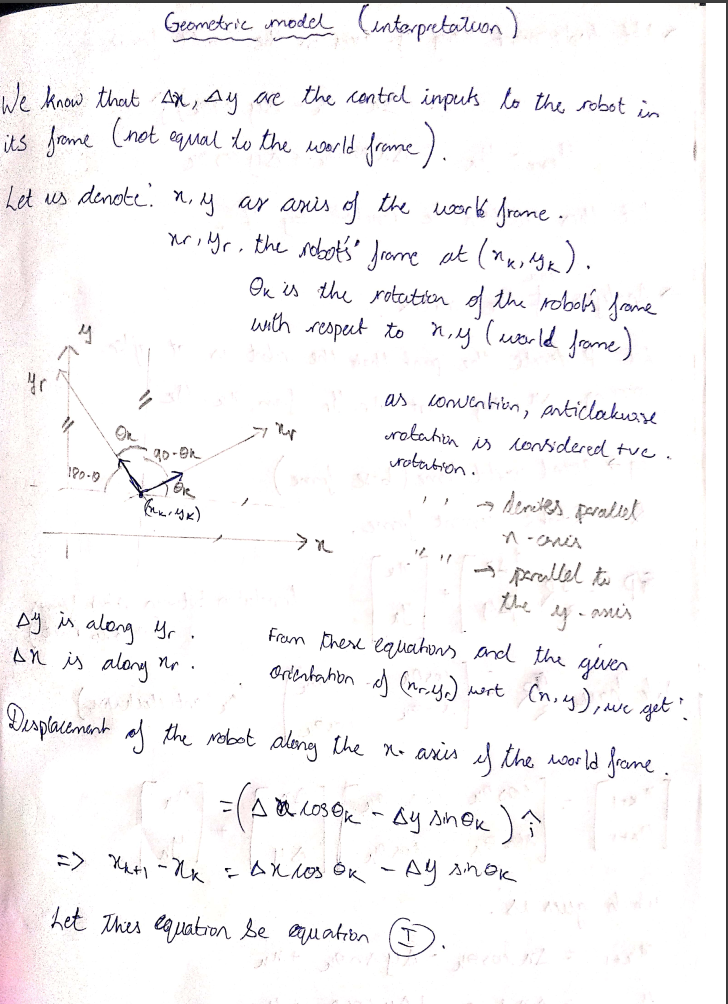 Geometric model (interpretation)
We know that Δx, Δy are the control inputs to the robot in
its frame (not equal to the world frame).
Let us denote: x, y as axis of the world frame.
xr, yr, the robot's' frame at (xk, yk).
θk is the rotation of the robot's frame
with respect to x, y (world frame)
y
yr
as convention, anticlockwise
rotation is considered +ve.
rotation.
θk
90-θk
xr
180-θ
θk
(xk, yk)
' ' → denotes parallel
x-axis
x
" " → parallel to
the y-axis
Δy is along yr.
Δx is along xr.
From these equations and the given
orientation of (xr, yr) wrt (x, y), we get:
Displacement of the robot along the x-axis of the world frame.
= (Δx cosθk - Δy sinθk) î
=> xk+1 - xk = Δx cos θk - Δy sinθk
Let this equation be equation (I).